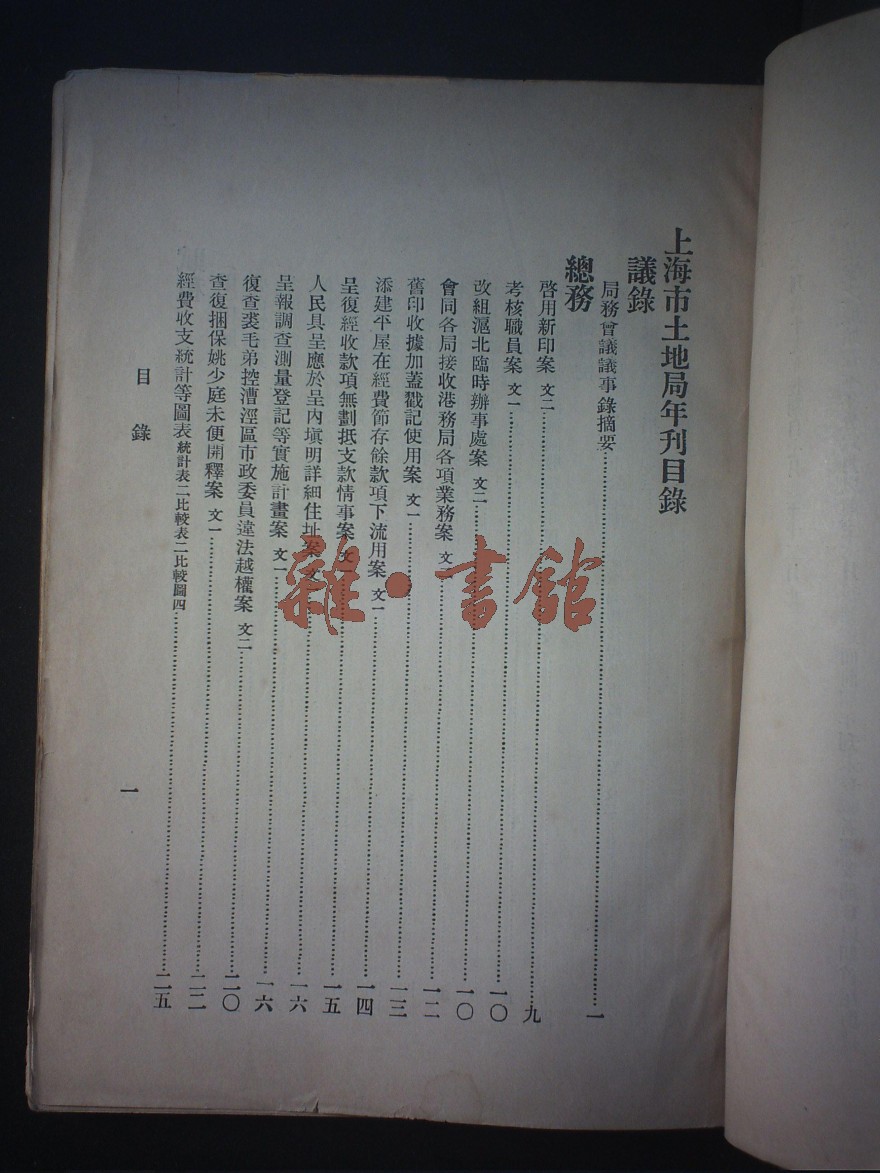 上海市土地局年刊目錄
議錄
局務會議議事錄摘要……一
總務
啓用新印案 文二……九
考核職員案 文一……一〇
改組滬北臨時辦事處案 文二……一〇
會同各局接收港務局各項業務案 文……一二
舊印收據加蓋戳記使用案 文一……一三
添建平屋在經費節存餘款項下流用案 文一……一四
呈復經收款項無劃抵支款情事案 文一……一五
人民具呈應於呈內塡明詳細住址案 文……一六
呈報調查測量登記等實施計畫案 文一……一六
復查裘毛弟控漕涇區市政委員違法越權案 文二……二〇
查復捆保姚少庭未便開釋案 文一……二二
經費收支統計等圖表 統計表二比較表二比較圖四……二五
目錄
一
雜·書館